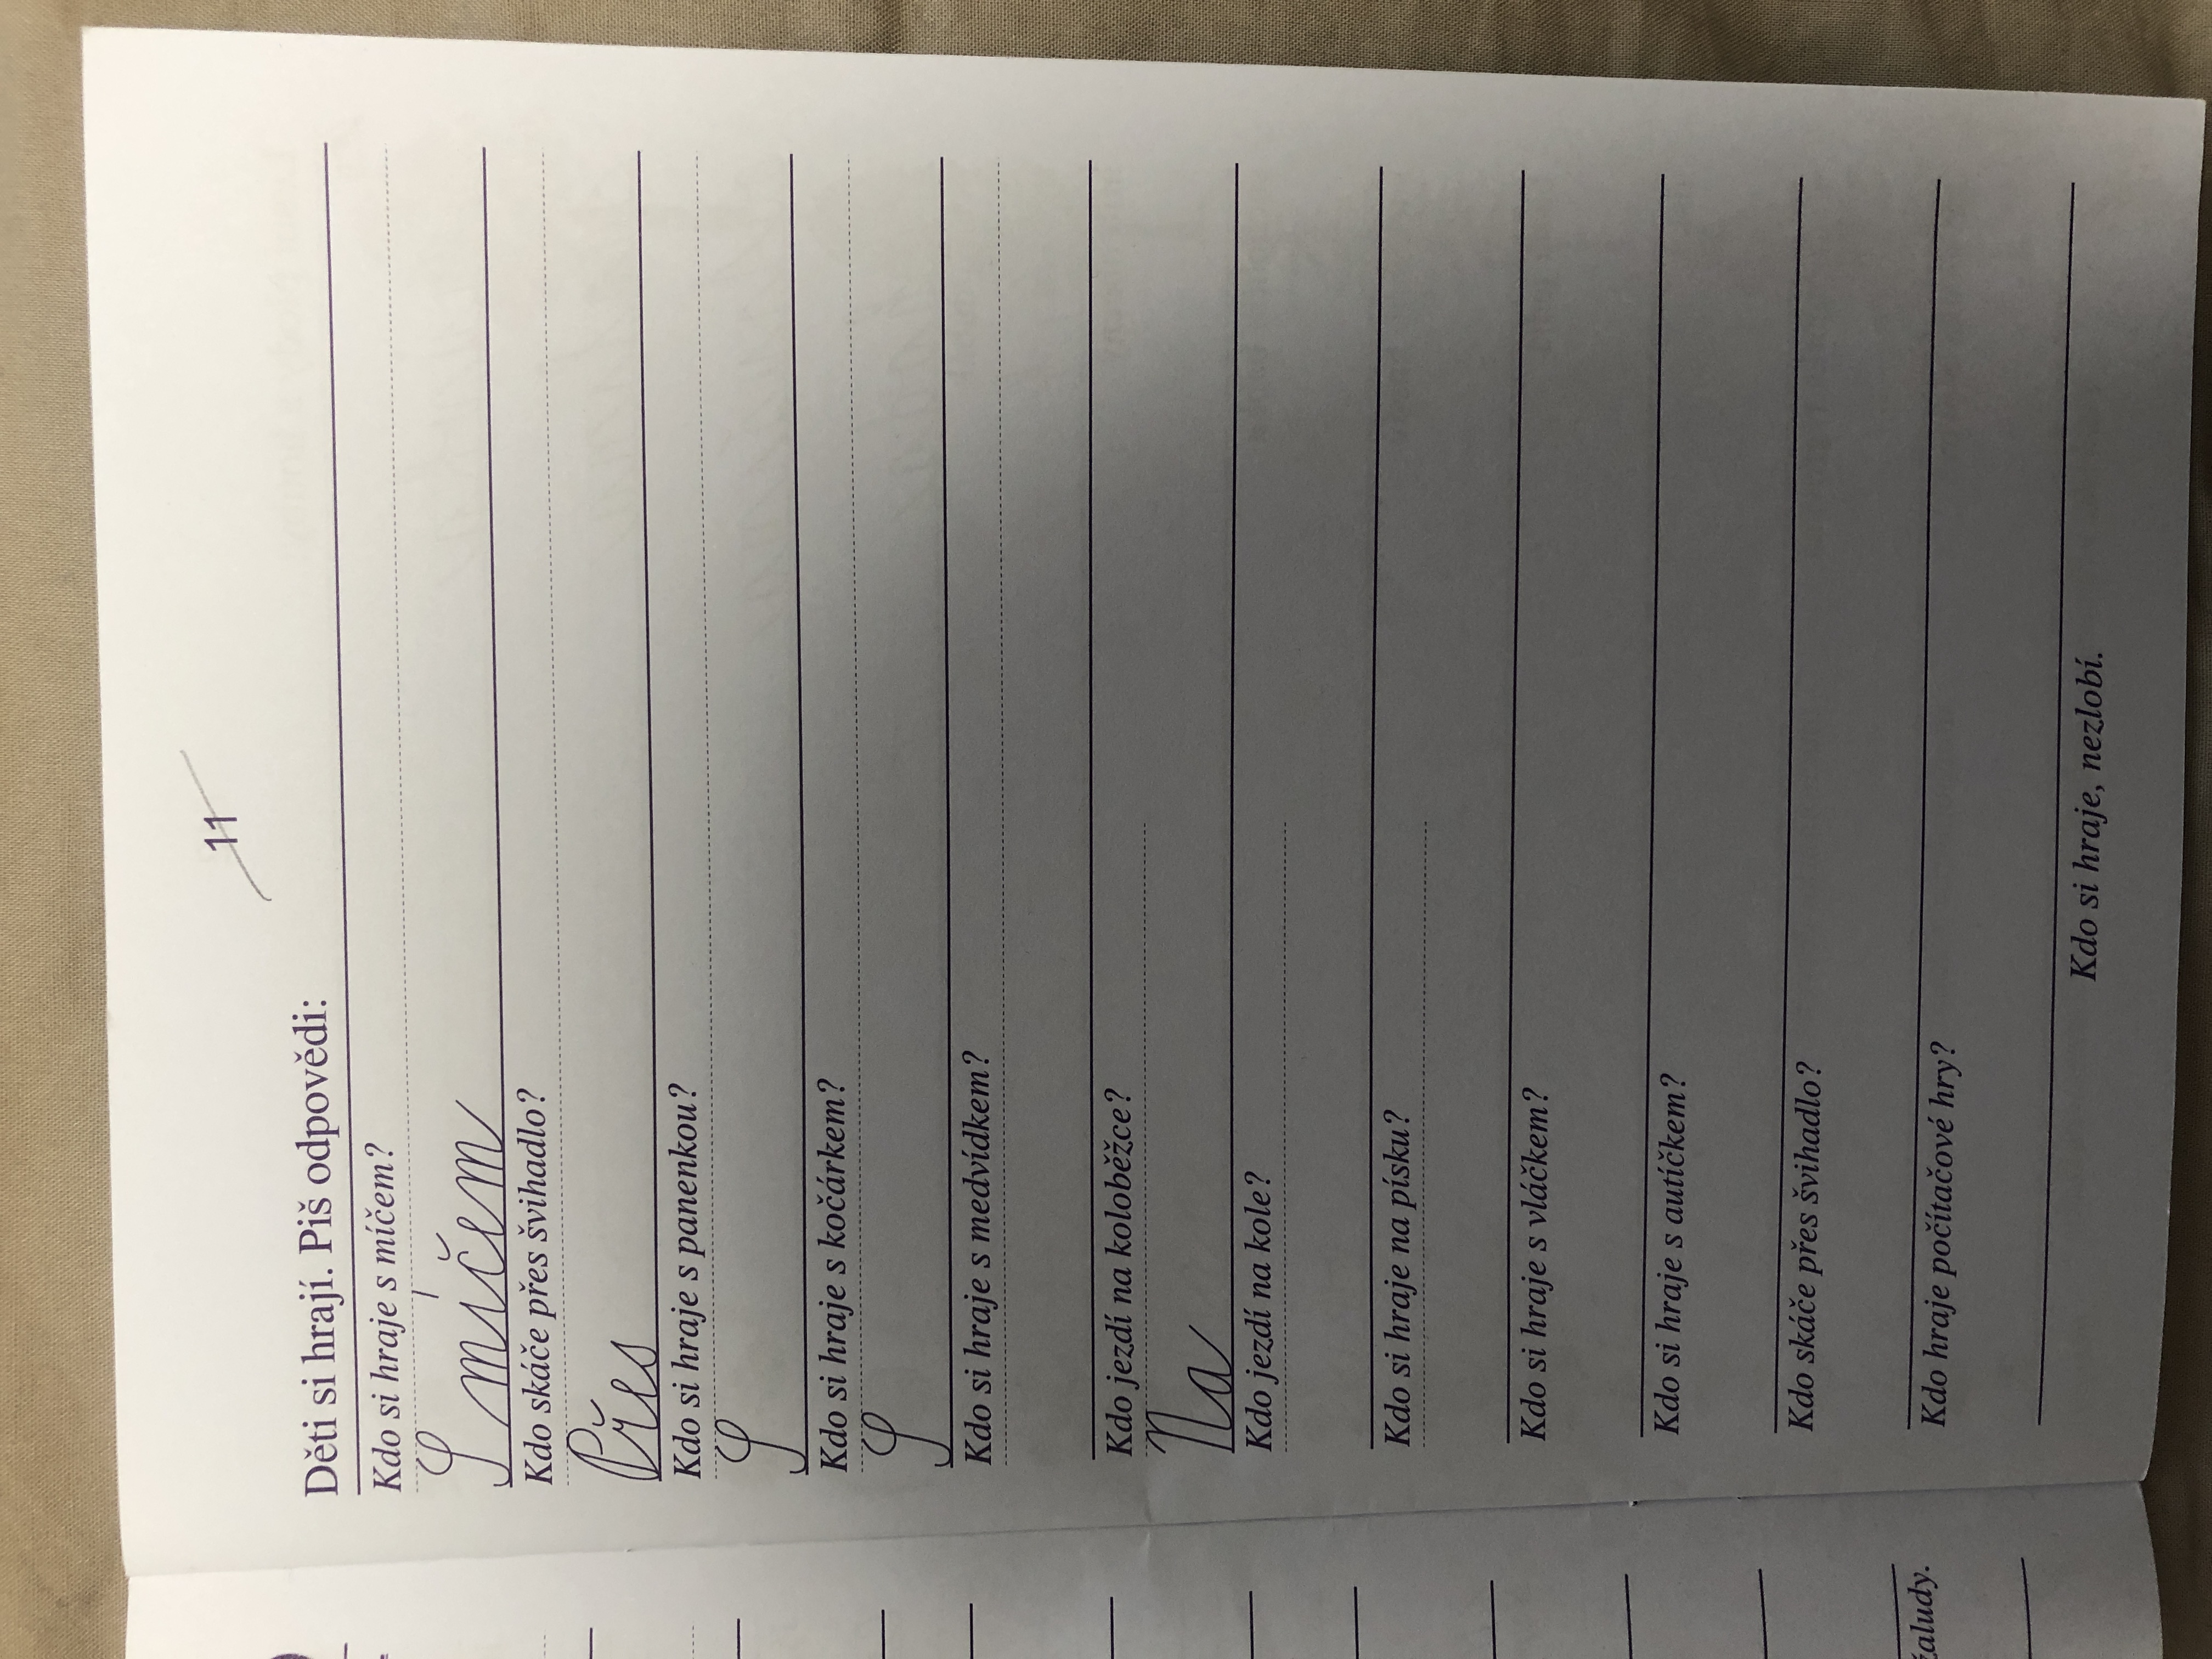 11
Děti si hrají. Piš odpovědi:
Kdo si hraje s míčem?
S míčem
Kdo skáče přes švihadlo?
Přes
Kdo si hraje s panenkou?
S
Kdo si hraje s kočárkem?
S
Kdo si hraje s medvídkem?
Kdo jezdí na koloběžce?
Na
Kdo jezdí na kole?
Kdo si hraje na písku?
Kdo si hraje s vláčkem?
Kdo si hraje s autíčkem?
Kdo skáče přes švihadlo?
Kdo hraje počítačové hry?
Kdo si hraje, nezlobí.
žaludy.